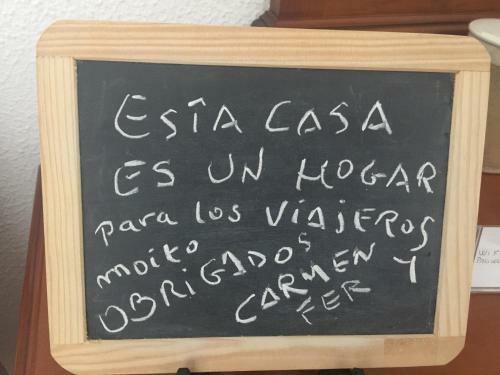 ESTA CASA
ES UN HOGAR
para los VIAJEROS
moito
OBRIGADOS
CARMEN Y
FER